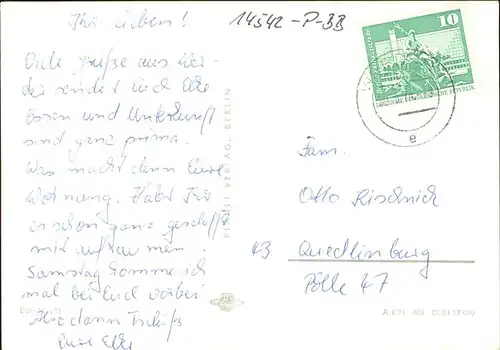 Ihr Lieben!
Viele Grüße aus Wer-
der sendet Euch Elke
Essen und Unterkunft
sind ganz prima.
Was macht denn Eure
Wohnung. Habt Ihr
es schon ganz geschafft
mit aufräumen.
Samstag komme ich
mal bei Euch vorbei
Also dann Tschüß
Eure Elke
14542-P-BB
10
DEUTSCHE DEMOKRATISCHE REPUBLIK
e
VERLAG, BERLIN
Fam.
Otto
43 Quedlinburg
Pölle 47